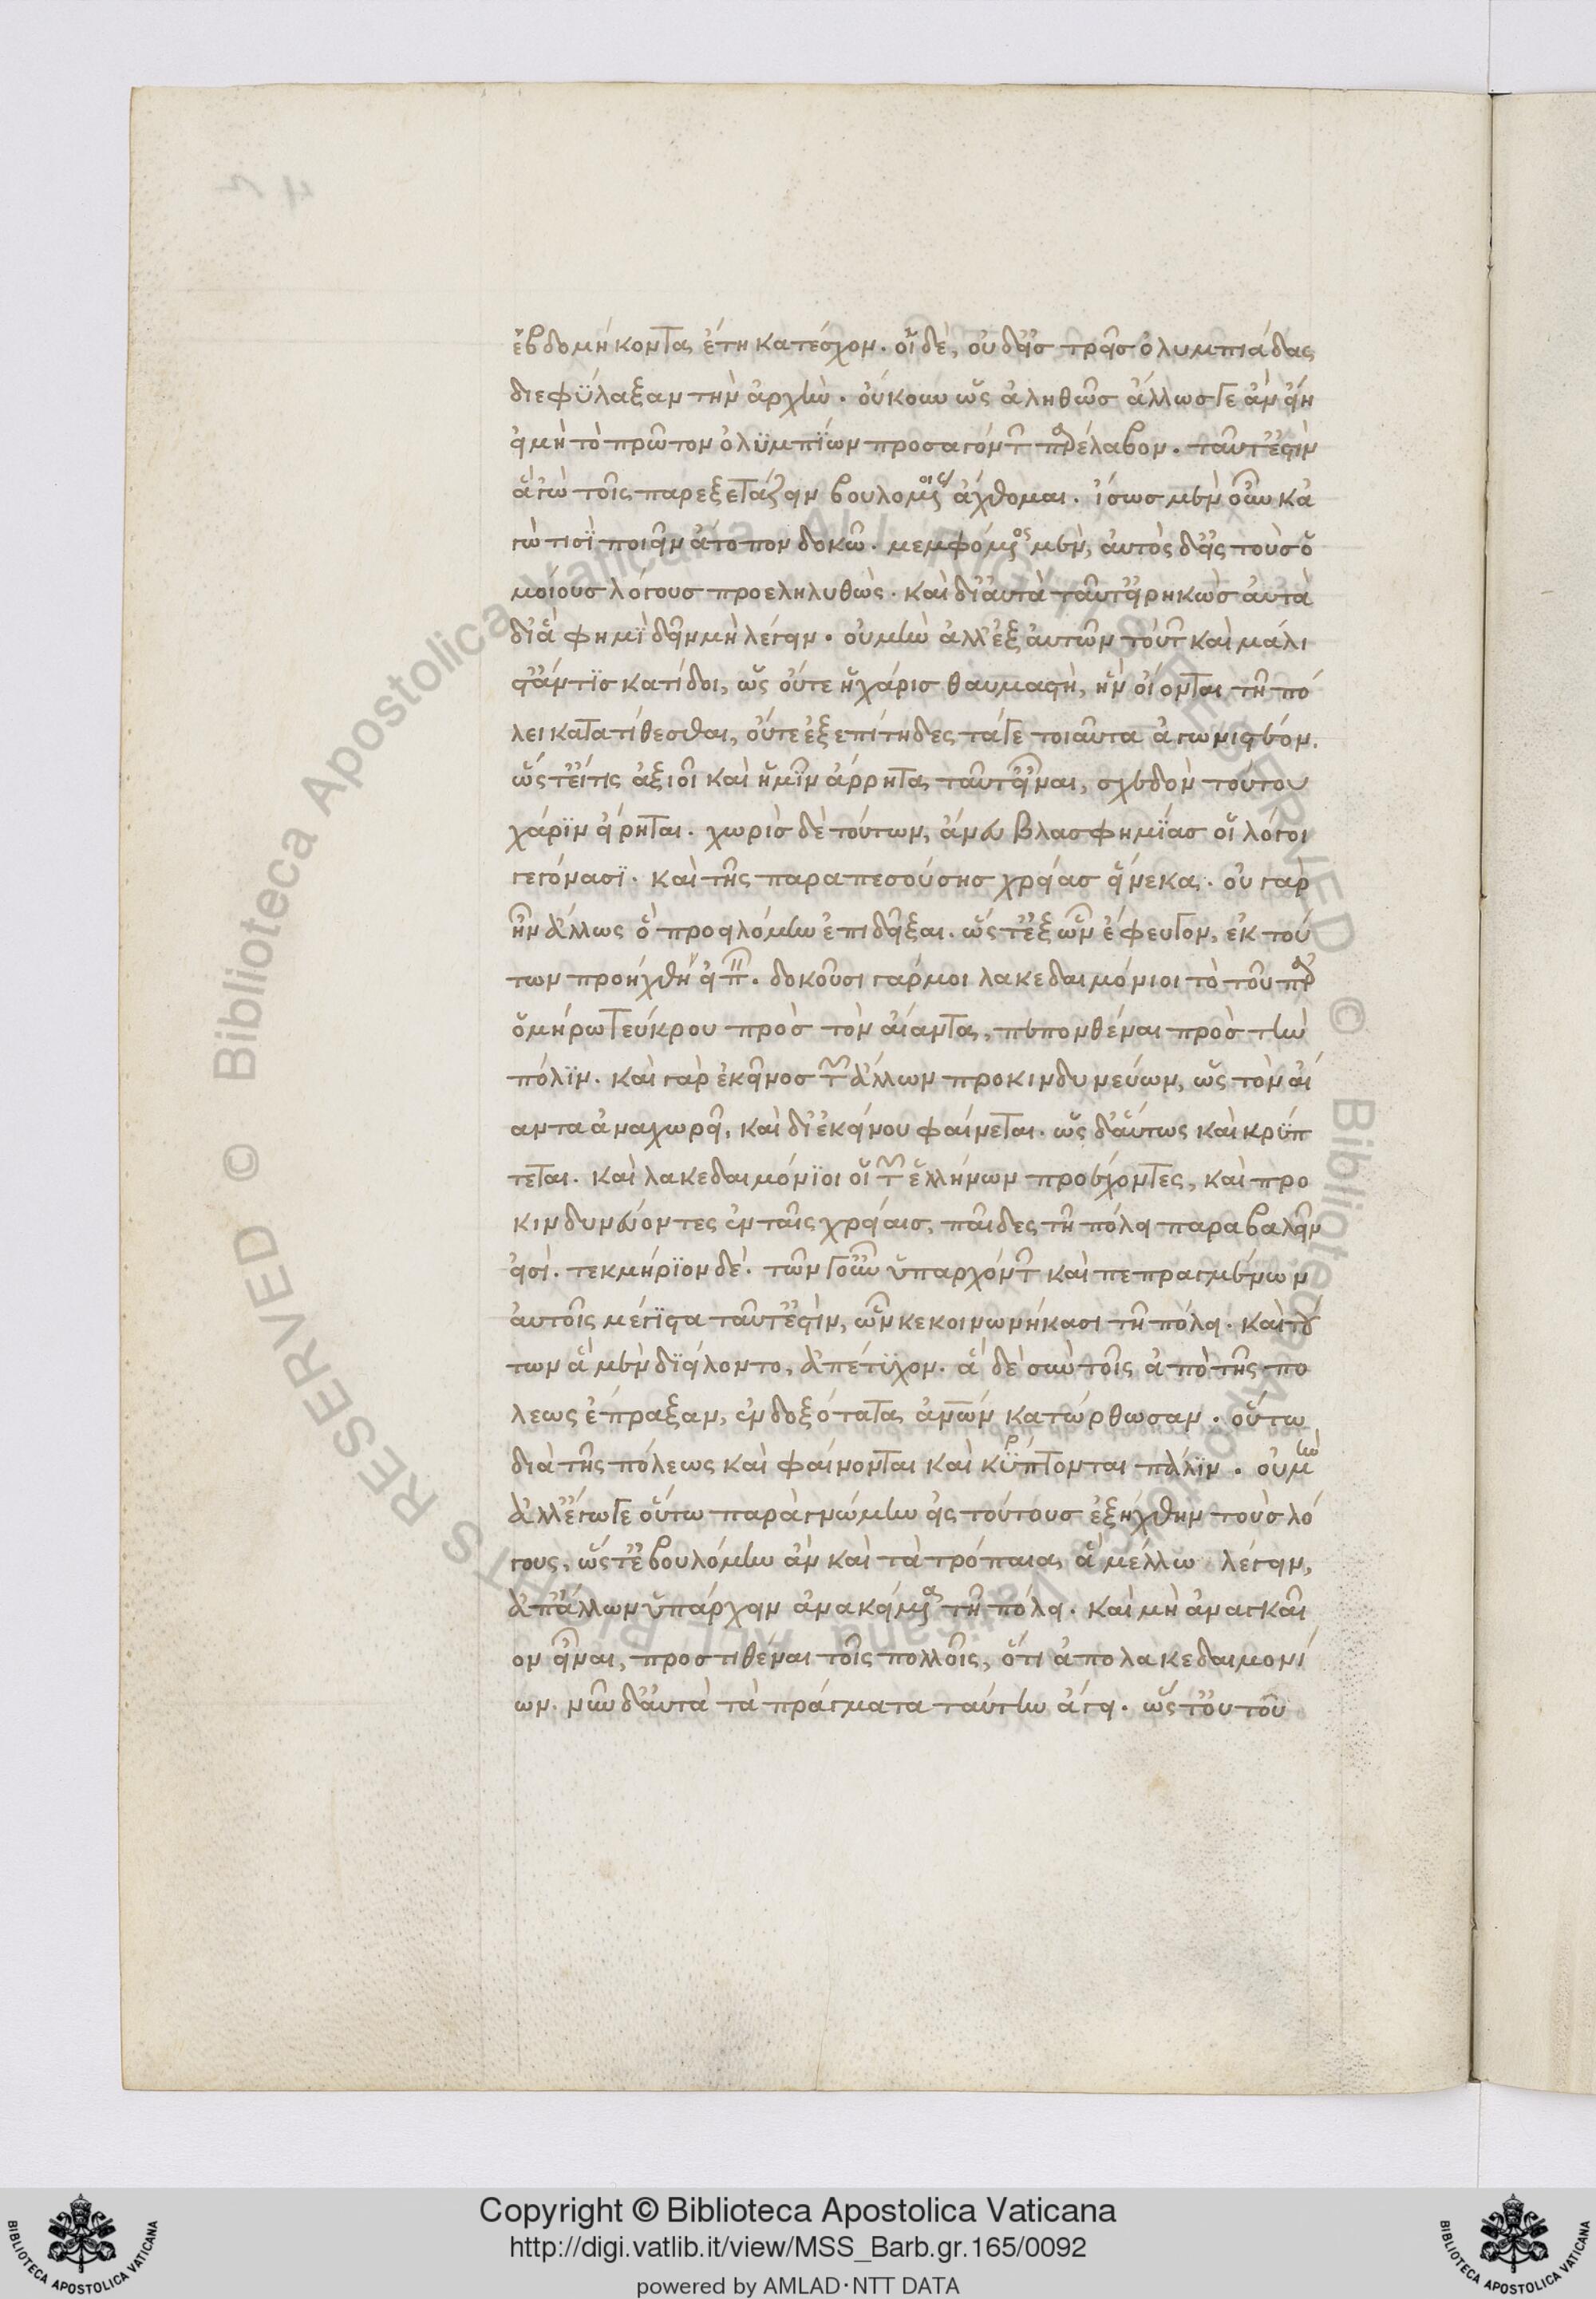 ἑβδομήκοντα ἔτη κατέσχον. οἱ δὲ, οὐδ' εἰς τρεῖς ὀλυμπιάδας
διεφύλαξαν τὴν ἀρχὴν. οὔκουν ὡς ἀληθῶς ἄλλως γε ἂν εἴη
εἰ μὴ τὸ πρῶτον ὀλυμπίων προσαγόντων παρέλαβον. ταῦτ' ἐστὶν
ἃ ἐγὼ τοῖς παρεξετάζειν βουλομένοις ἄχθομαι. ἴσως μὲν οὖν κἀ
γώ τισι ποιεῖν ἄτοπον δοκῶ. μεμφόμενος μὲν, αὐτὸς δ' εἰς τοὺς ὁ
μοίους λόγους προεληλυθὼς. καὶ δι' αὐτὰ ταῦτ' εἰρηκὼς αὐτὰ
δι' ἃ φημὶ δεῖν μὴ λέγειν. οὐ μὴν ἀλλ' ἐξ αὐτῶν τούτων καὶ μάλι
στ' ἄν τις κατίδοι, ὡς οὔτε ἡ χάρις θαυμαστὴ, ἣν οἴονται τῇ πό
λει κατατίθεσθαι, οὔτε ἐξεπίτηδες τά γε τοιαῦτα ἀγωνιστέον.
ὥστ' εἴ τις ἀξιοῖ καὶ ἡμῖν ἄρρητα ταῦτ' εἶναι, σχεδὸν τούτου
χάριν εἴρηται. χωρὶς δὲ τούτων, ἄνευ βλασφημίας οἱ λόγοι
γεγόνασι. καὶ τῆς παραπεσούσης χρείας εἵνεκα. οὐ γὰρ
ἦν ἄλλως ὃ προειλόμην ἐπιδεῖξαι. ὥστ' ἐξ ὧν ἔφευγον, ἐκ τού
των προήχθην εἰπεῖν. δοκοῦσι γάρ μοι λακεδαιμόνιοι τὸ τοῦ παρ'
ὁμήρῳ τεύκρου πρὸς τὸν αἴαντα, πεπονθέναι πρὸς τὴν
πόλιν. καὶ γὰρ ἐκεῖνος τῶν ἄλλων προκινδυνεύων, ὡς τὸν αἴ
αντα ἀναχωρεῖ, καὶ δι' ἐκείνου φαίνεται. ὡς δ' αὔτως καὶ κρύπ
τεται. καὶ λακεδαιμόνιοι οἱ τῶν ἑλλήνων προέχοντες, καὶ προ
κινδυνεύοντες ἐν ταῖς χρείαις, παῖδες τῇ πόλει παραβαλεῖν
εἰσί. τεκμήριον δέ. τῶν γοῦν ὑπαρχόντων καὶ πεπραγμένων
αὐτοῖς μέγιστα ταῦτ' ἐστὶν, ὧν κεκοινωνήκασι τῇ πόλει. καὶ τού
των ἃ μὲν διείλοντο, ἀπέτυχον. ἃ δὲ σὺν τοῖς ἀπὸ τῆς πό
λεως ἔπραξαν, ἐνδοξότατα ἀνθρώπων κατώρθωσαν. οὕτω
διὰ τῆς πόλεως καὶ φαίνονται καὶ κρύπτονται πάλιν. οὐ μὴν
ἀλλ' ἔγωγε οὕτω παρὰ γνώμην εἰς τούτους ἐξήχθην τοὺς λό
γους, ὥστ' ἐβουλόμην ἂν καὶ τὰ τρόπαια, ἃ μέλλω λέγειν,
ἀπ' ἄλλων ὑπάρχειν ἀνακείμενα τῇ πόλει. καὶ μὴ ἀναγκαῖ
ον εἶναι, προστιθέναι τοῖς πολλοῖς, ὅτι ἀπὸ λακεδαιμονί
ων. νῦν δ' αὐτὰ τὰ πράγματα ταύτην ἄγει. ὥστ' οὐ τοῦ
Copyright © Biblioteca Apostolica Vaticana
http://digi.vatlib.it/view/MSS_Barb.gr.165/0092
powered by AMLAD·NTT DATA